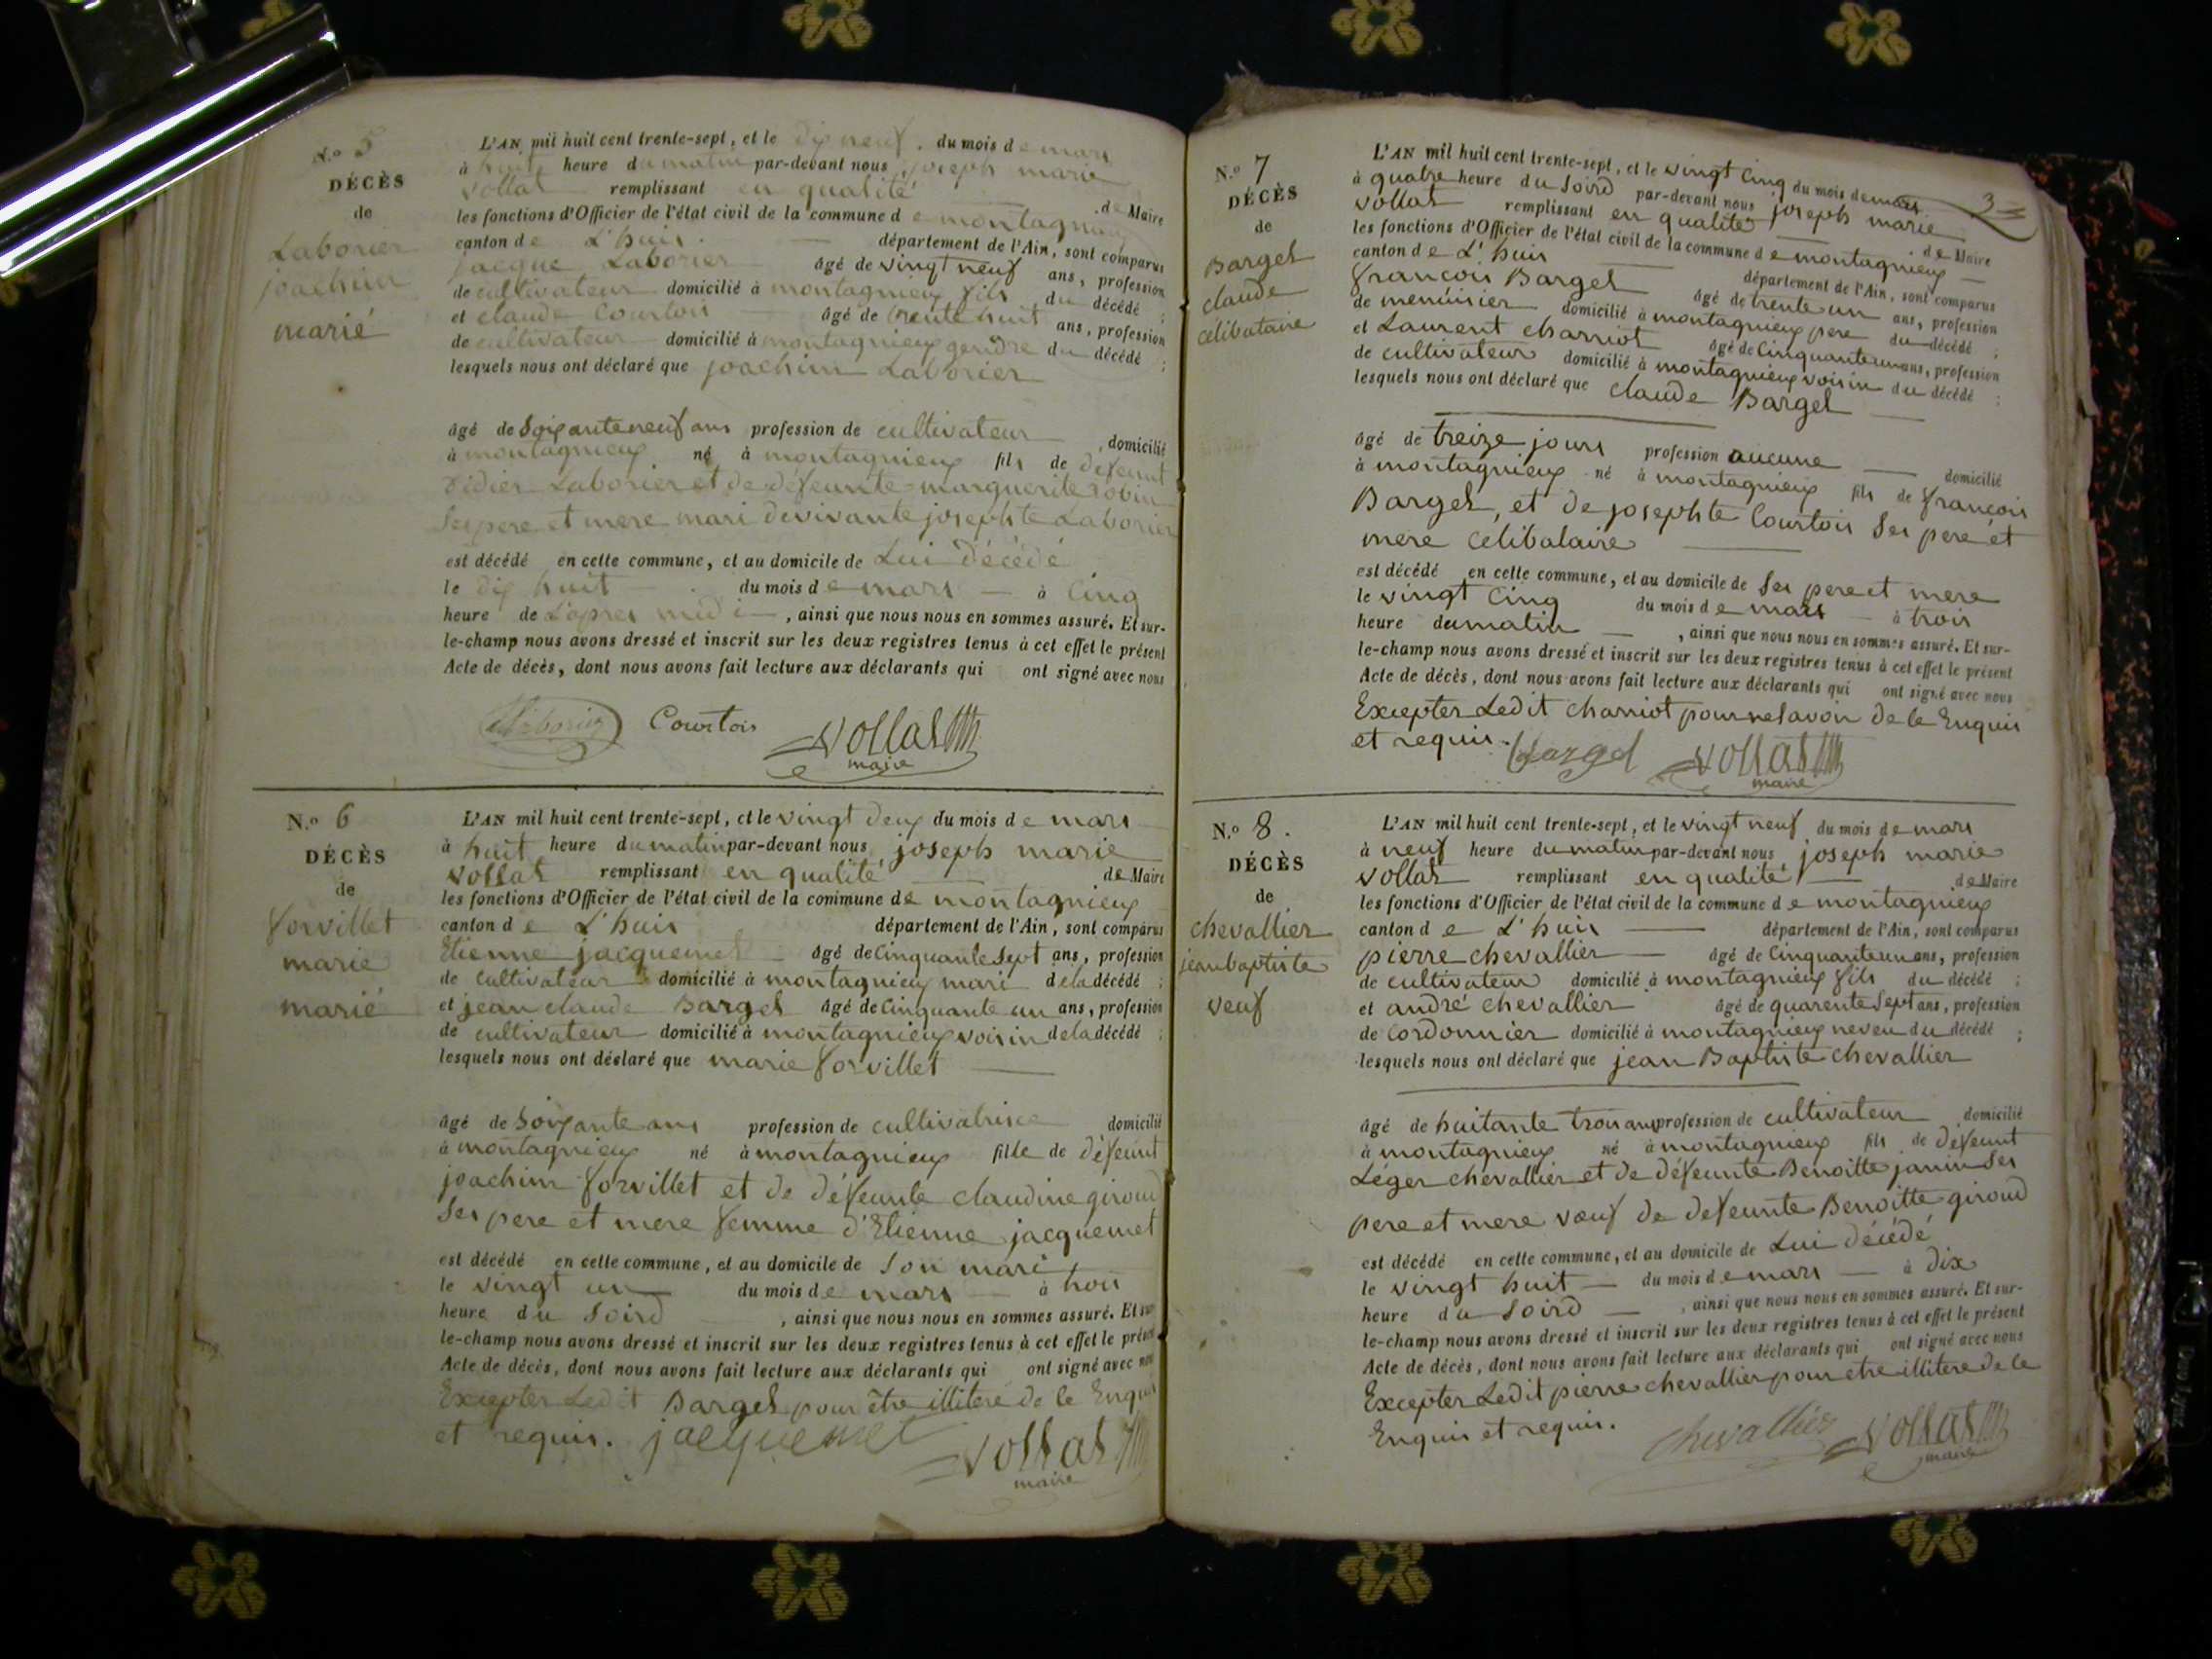 N.º 5
DÉCÈS
de
Laborier
joachim
marié
L'AN mil huit cent trente-sept, et le dix neuf du mois de mars
à huit heure du matin par-devant nous joseph marie
vollat remplissant en qualité de Maire
les fonctions d'Officier de l'état civil de la commune de montagnieux
canton de L'huis département de l'Ain, sont comparus
jacque Laborier âgé de vingt neuf ans, profession
de cultivateur domicilié à montagnieux fils du décédé ;
et claude Courtois âgé de trente huit ans, profession
de cultivateur domicilié à montagnieux gendre du décédé ;
lesquels nous ont déclaré que joachim Laborier
âgé de Soixante neuf ans profession de cultivateur, domicilié
à montagnieux né à montagnieux fils de défeunt
didier Laborier et de défeunte marguerite robin
Ses pere et mere mari de vivante josephte Laborier
est décédé en cette commune, et au domicile de Lui décédé
le dix huit du mois de mars à Cinq
heure de L'apres midi, ainsi que nous nous en sommes assuré. Et sur-
le-champ nous avons dressé et inscrit sur les deux registres tenus à cet effet le présent
Acte de décès, dont nous avons fait lecture aux déclarants qui ont signé avec nous
Laborier Courtois vollat
maire
N.º 6
DÉCÈS
de
forvillet
marie
marié
L'AN mil huit cent trente-sept, et le vingt deux du mois de mars
à huit heure du matin par-devant nous joseph marie
vollat remplissant en qualité de Maire
les fonctions d'Officier de l'état civil de la commune de montagnieux
canton de L'huis département de l'Ain, sont comparus
Etienne jacquemet âgé de Cinquante Sept ans, profession
de cultivateur domicilié à montagnieux mari de la décédé ;
et jean claude Barget âgé de Cinquante un ans, profession
de cultivateur domicilié à montagnieux voisin de la décédé ;
lesquels nous ont déclaré que marie forvillet
âgé de Soixante ans profession de cultivatrice domicilié
à montagnieux né à montagnieux fille de défeunt
joachim forvillet et de défeunte claudine giroud
Ses pere et mere femme d'Etienne jacquemet
est décédé en cette commune, et au domicile de Son mari
le vingt un du mois de mars à trois
heure du Soird, ainsi que nous nous en sommes assuré. Et sur
le-champ nous avons dressé et inscrit sur les deux registres tenus à cet effet le présent
Acte de décès, dont nous avons fait lecture aux déclarants qui ont signé avec nous
Excepter Ledit Barget pour être illitere de le Enquis
et requis. jacquemet vollat
maire
3
N.º 7
DÉCÈS
de
Barget
claude
celibataire
L'AN mil huit cent trente-sept, et le vingt Cinq du mois de mars
à quatre heure du Soird par-devant nous joseph marie
vollat remplissant en qualité de Maire
les fonctions d'Officier de l'état civil de la commune de montagnieux
canton de L'huis département de l'Ain, sont comparus
francois Barget âgé de trente un ans, profession
de menuisier domicilié à montagnieux pere du décédé ;
et Laurent charriot âgé de Cinquante un ans, profession
de cultivateur domicilié à montagnieux voisin du décédé ;
lesquels nous ont déclaré que claude Barget
âgé de treize jours profession aucune domicilié
à montagnieux né à montagnieux fils de francois
Barget, et de josephte Courtois Ses pere et
mere Celibataire
est décédé en cette commune, et au domicile de Ses pere et mere
le vingt Cinq du mois de mars à trois
heure du matin, ainsi que nous nous en sommes assuré. Et sur-
le-champ nous avons dressé et inscrit sur les deux registres tenus à cet effet le présent
Acte de décès, dont nous avons fait lecture aux déclarants qui ont signé avec nous
Excepter Ledit charriot pour ne Savoir de le Enquis
et requis. Bargel vollat
maire
N.º 8.
DÉCÈS
de
chevallier
jean baptiste
veuf
L'AN mil huit cent trente-sept, et le vingt neuf du mois de mars
à neuf heure du matin par-devant nous joseph marie
vollat remplissant en qualité de Maire
les fonctions d'Officier de l'état civil de la commune de montagnieux
canton de L'huis département de l'Ain, sont comparus
pierre chevallier âgé de Cinquante un ans, profession
de cultivateur domicilié à montagnieux fils du décédé ;
et andré chevallier âgé de quarente Sept ans, profession
de Cordonnier domicilié à montagnieux neveu du décédé ;
lesquels nous ont déclaré que jean Baptiste chevallier
âgé de huitante trois ans profession de cultivateur domicilié
à montagnieux né à montagnieux fils de défeunt
Léger chevallier et de défeunte Benoitte janin Ses
pere et mere vœuf de defeunte Benoitte giroud
est décédé en cette commune, et au domicile de Lui décédé
le vingt huit du mois de mars à dix
heure du Soird, ainsi que nous nous en sommes assuré. Et sur-
le-champ nous avons dressé et inscrit sur les deux registres tenus à cet effet le présent
Acte de décès, dont nous avons fait lecture aux déclarants qui ont signé avec nous
Excepter Ledit pierre chevallier pour etre illitere de le
Enquis et requis. chevallier vollat
maire